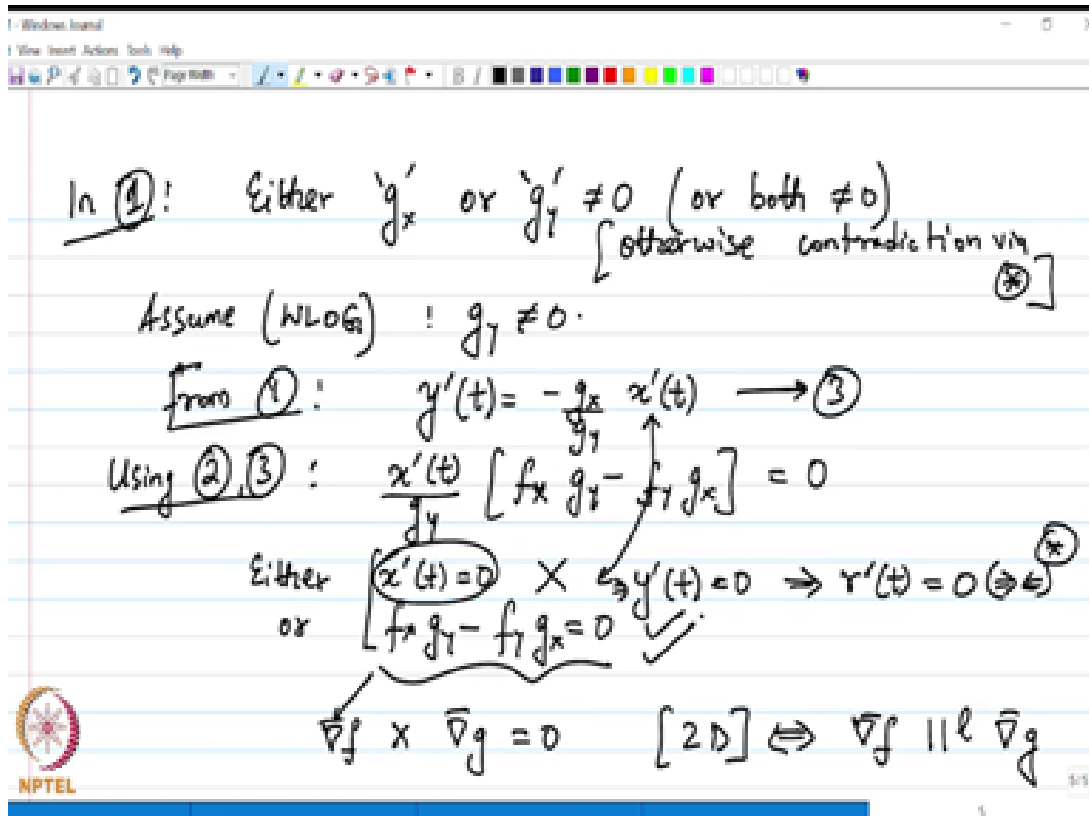 - Windows Journal
View Insert Actions Tools Help
Page Width
B I
In ①: Either 'gₓ' or 'g_y' ≠ 0 (or both ≠ 0)
[otherwise contradiction via ⊛]
Assume (WLOG) : g_y ≠ 0.
From ①: y'(t) = -gₓ/g_y x'(t) → ③
Using ②,③: x'(t)/g_y [fₓ g_y - f_y gₓ] = 0
Either [x'(t) = 0 X ⇒ y'(t) = 0 ⇒ r'(t) = 0 (⇒⇐) ⊛
or [fₓ g_y - f_y gₓ = 0 ✓✓
∇̄f × ∇̄g = 0 [2D] ⇔ ∇̄f ||l ∇̄g
NPTEL
5/5